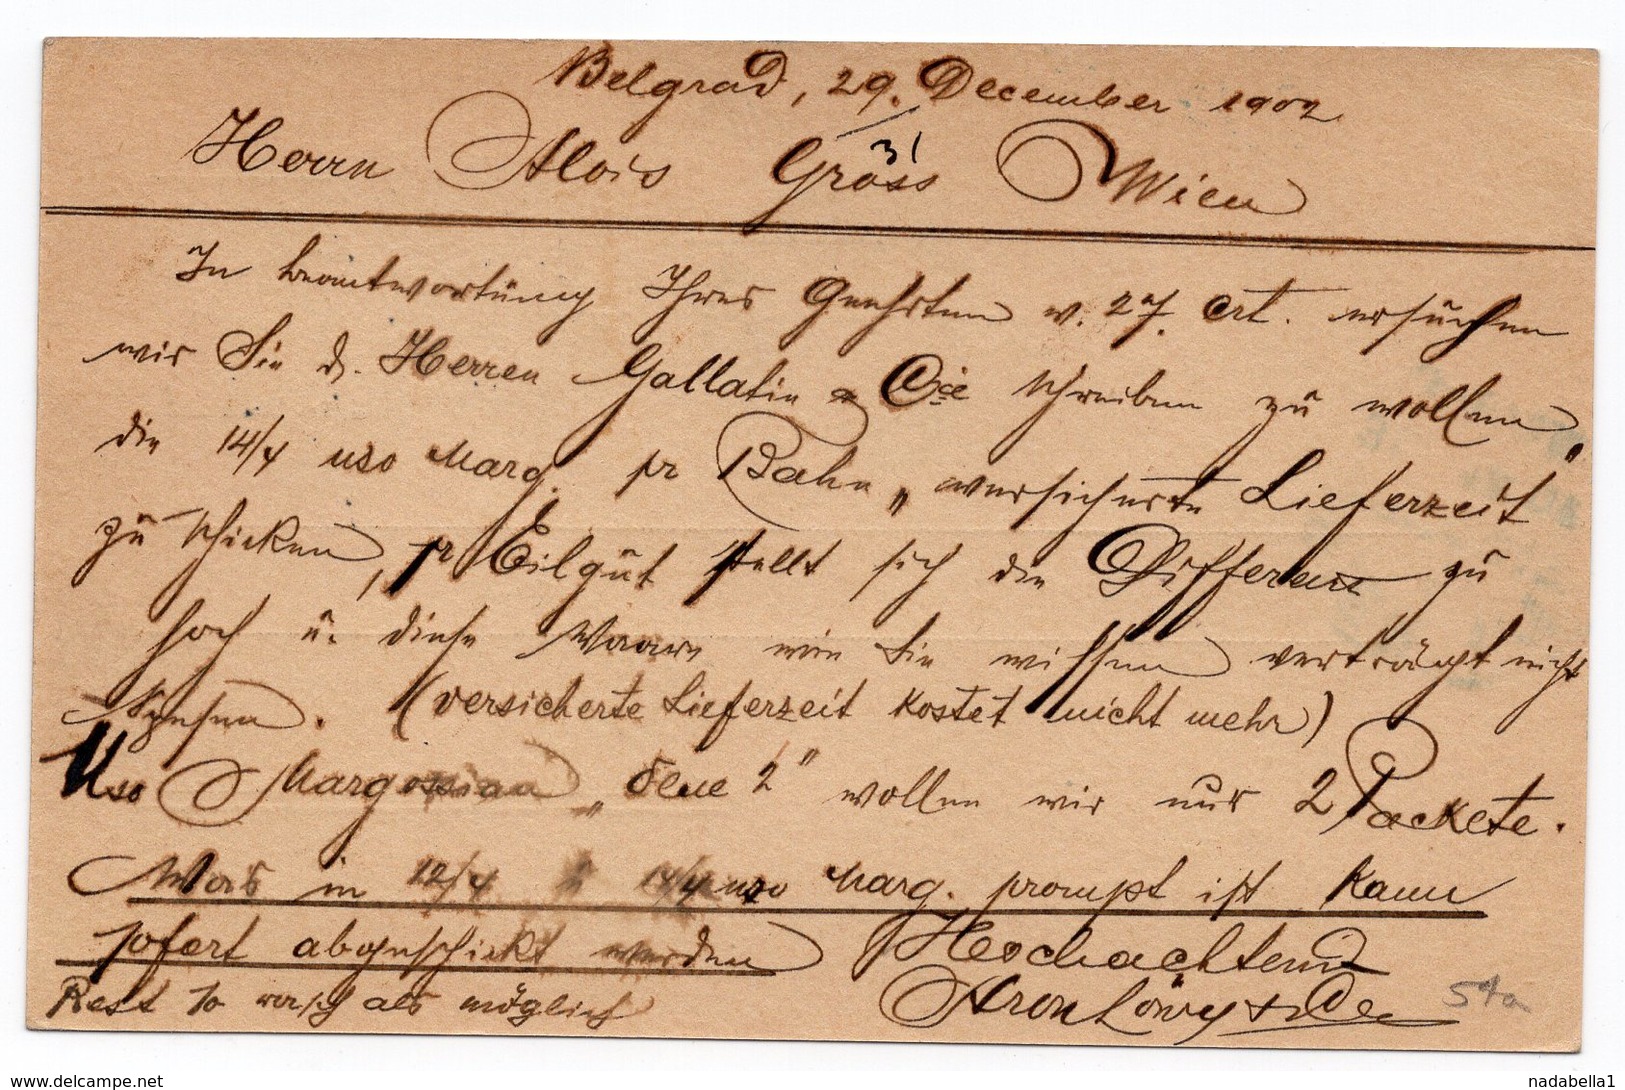 Belgrad, 29. December 1902.
31
Herrn Alois Gröss Wien
In beantwortung Ihres Geehrten v. 27. Crt. ersuchen
wir Sie d. Herren Gallatin & Cie schreiben zu wollen
die 14/4 uso Marg. pr Bahn „versicherte Lieferzeit"
zu schicken, pr Eilgut stellt sich die Differenz zu
hoch u. diese Waare wie Sie wissen verträgt nicht
Spesen. (versicherte Lieferzeit kostet nicht mehr)
Uso Margossian „ 2" wollen wir nur 2 Packete.
Was in 12/4 14/4 uso Marg. prompt ist kann
sofort abgeschickt werden Hochachtend
Rest so rasch als möglich Aron Löwy &
54a
nadabella1
delcampe.net